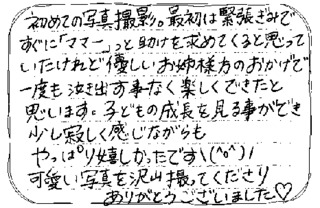 初めての写真撮影。最初は緊張ぎみで
すぐに「ママー」っと助けを求めてくると思って
いたけれど優しいお姉様方のおかげで
一度も泣き出す事なく楽しくできたと
思います。子どもの成長を見る事ができ
少し寂しく感じながらも
やっぱり嬉しかったです\(^o^)/
可愛い写真を沢山撮ってくださり
ありがとうございました♡